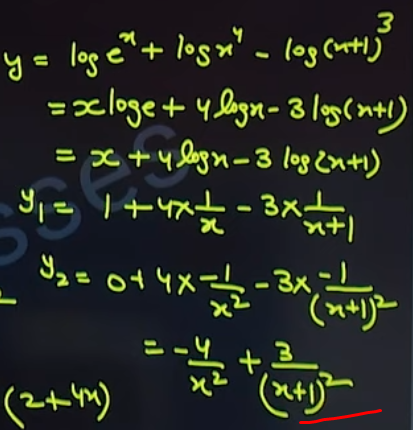 y = log e^x + log x^4 - log (x+1)^3
= x log e + 4 log x - 3 log (x+1)
= x + 4 log x - 3 log (x+1)
y₁ = 1 + 4 × 1/x - 3 × 1/(x+1)
y₂ = 0 + 4 × -1/x² - 3 × -1/(x+1)²
= -4/x² + 3/(x+1)²
(2+4x)